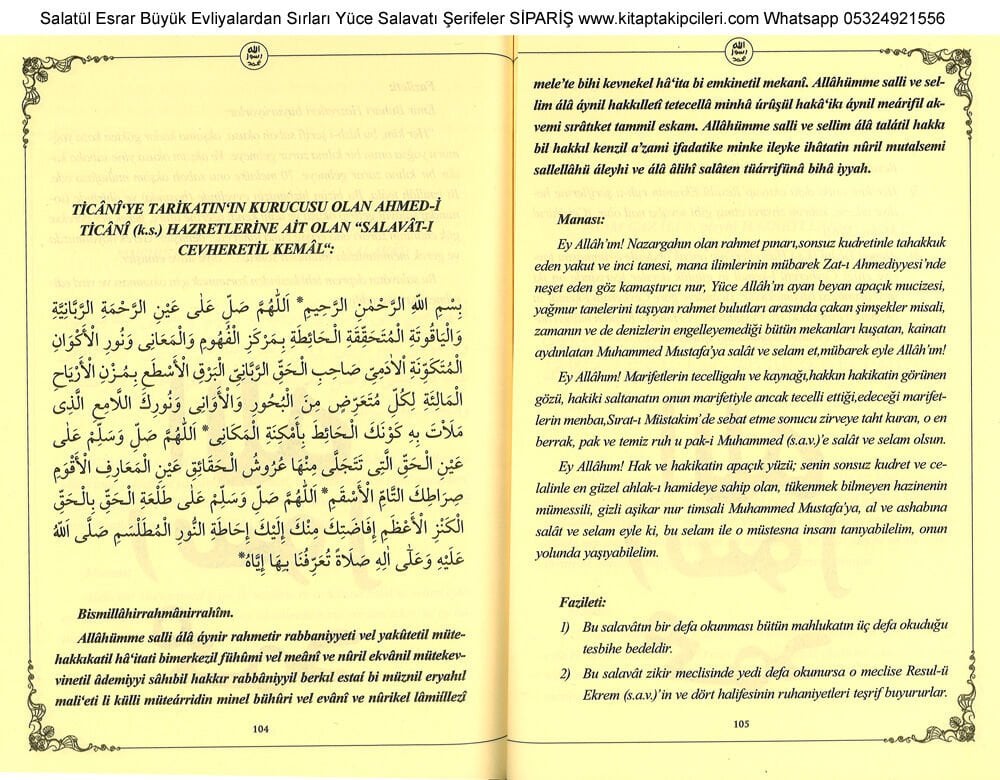 Salatül Esrar Büyük Evliyalardan Sırları Yüce Salavatı Şerifeler SİPARİŞ www.kitaptakipcileri.com Whatsapp 05324921556
TİCÂNÎ‘YE TARİKATIN‘IN KURUCUSU OLAN AHMED-İ
TİCÂNÎ (k.s.) HAZRETLERİNE AİT OLAN “SALAVÂT-I
CEVHERETİL KEMÂL“:
بِسْمِ اللّٰهِ الرَّحْمٰنِ الرَّحِيمِ* اَللّٰهُمَّ صَلِّ عَلٰى عَيْنِ الرَّحْمَةِ الرَّبَّانِيَّةِ
وَالْيَاقُوتَةِ الْمُتَحَقِّقَةِ الْحَائِطَةِ بِمَرْكَزِ الْفُهُومِ وَالْمَعَانِى وَنُورِ الْأَكْوَانِ
الْمُتَكَوِّنَةِ الْاٰدَمِىِّ صَاحِبِ الْحَقِّ الرَّبَّانِىِّ الْبَرْقِ الْأَسْطَعِ بِمُزْنِ الْأَرْيَاحِ
الْمَالِئَةِ لِكُلِّ مُتَعَرِّضٍ مِنَ الْبُحُورِ وَالْأَوَانِى وَنُورِكَ اللَّامِعِ الَّذِى
مَلَأْتَ بِهِ كَوْنَكَ الْحَائِطَ بِأَمْكِنَةِ الْمَكَانِى* اَللّٰهُمَّ صَلِّ وَسَلِّمْ عَلٰى
عَيْنِ الْحَقِّ الَّتِى تَتَجَلَّى مِنْهَا عُرُوشُ الْحَقَائِقِ عَيْنِ الْمَعَارِفِ الْأَقْوَمِ
صِرَاطِكَ التَّامِّ الْأَسْقَمِ* اَللّٰهُمَّ صَلِّ وَسَلِّمْ عَلٰى طَلْعَةِ الْحَقِّ بِالْحَقِّ
الْكَنْزِ الْأَعْظَمِ إِفَاضَتِكَ مِنْكَ إِلَيْكَ إِحَاطَةِ النُّورِ الْمُطَلْسَمِ صَلَّى اللّٰهُ
عَلَيْهِ وَعَلٰى اٰلِهِ صَلَاةً تُعَرِّفُنَا بِهَا إِيَّاهُ*
Bismillâhirrahmânirrahîm.
Allâhümme salli álâ áynir rahmetir rabbaniyyeti vel yakûtetil müte-
hakkıkatil hâ‘itati bimerkezil fühûmi vel meânî ve nûril ekvânil mütekev-
vinetil âdemiyyi sâhıbil hakkır rabbâniyyil berkıl estaí bi müznil eryahıl
mali‘eti li külli müteárridin minel bühûri vel evânî ve nûrikel lâmiıllezî
104
mele‘te bihi kevnekel hâ‘ita bi emkinetil mekanî. Allâhümme salli ve sel-
lim álâ áynil hakkıllefî tetecellâ minhâ úrûşül hakâ‘ikı áynil meárifil ak-
vemi sırâtıket tammil eskam. Allâhümme salli ve sellim álâ talátil hakkı
bil hakkıl kenzil a‘zami ifadatike minke ileyke ihâtatin nûril mutalsemi
sallellâhü áleyhi ve álâ âlihî salâten tüárrifünâ bihâ iyyah.
Manası:
Ey Allâh‘ım! Nazargahın olan rahmet pınarı,sonsuz kudretinle tahakkuk
eden yakut ve inci tanesi, mana ilimlerinin mübarek Zat-ı Ahmediyyesi‘nde
neşet eden göz kamaştırıcı nur, Yüce Allâh‘ın ayan beyan apaçık mucizesi,
yağmur tanelerini taşıyan rahmet bulutları arasında çakan şimşekler misali,
zamanın ve de denizlerin engelleyemediği bütün mekanları kuşatan, kainatı
aydınlatan Muhammed Mustafa‘ya salât ve selam et,mübarek eyle Allâh‘ım!
Ey Allâhım! Marifetlerin tecelligahı ve kaynağı,hakkın hakikatin görünen
gözü, hakiki saltanatın onun marifetiyle ancak tecelli ettiği,edeceği marifet-
lerin menbaı,Sırat-ı Müstakim‘de sebat etme sonucu zirveye taht kuran, o en
berrak, pak ve temiz ruh u pak-i Muhammed (s.a.v.)‘e salât ve selam olsun.
Ey Allâhım! Hak ve hakikatin apaçık yüzü; senin sonsuz kudret ve ce-
lalinle en güzel ahlak-ı hamideye sahip olan, tükenmek bilmeyen hazinenin
mümessili, gizli aşikar nur timsali Muhammed Mustafa‘ya, al ve ashabına
salât ve selam eyle ki, bu selam ile o müstesna insanı tanıyabilelim, onun
yolunda yaşıyabilelim.
Fazileti:
1) Bu salavâtın bir defa okunması bütün mahlukatın üç defa okuduğu
tesbihe bedeldir.
2) Bu salavât zikir meclisinde yedi defa okunursa o meclise Resul-ü
Ekrem (s.a.v.)‘in ve dört halifesinin ruhaniyetleri teşrif buyururlar.
105